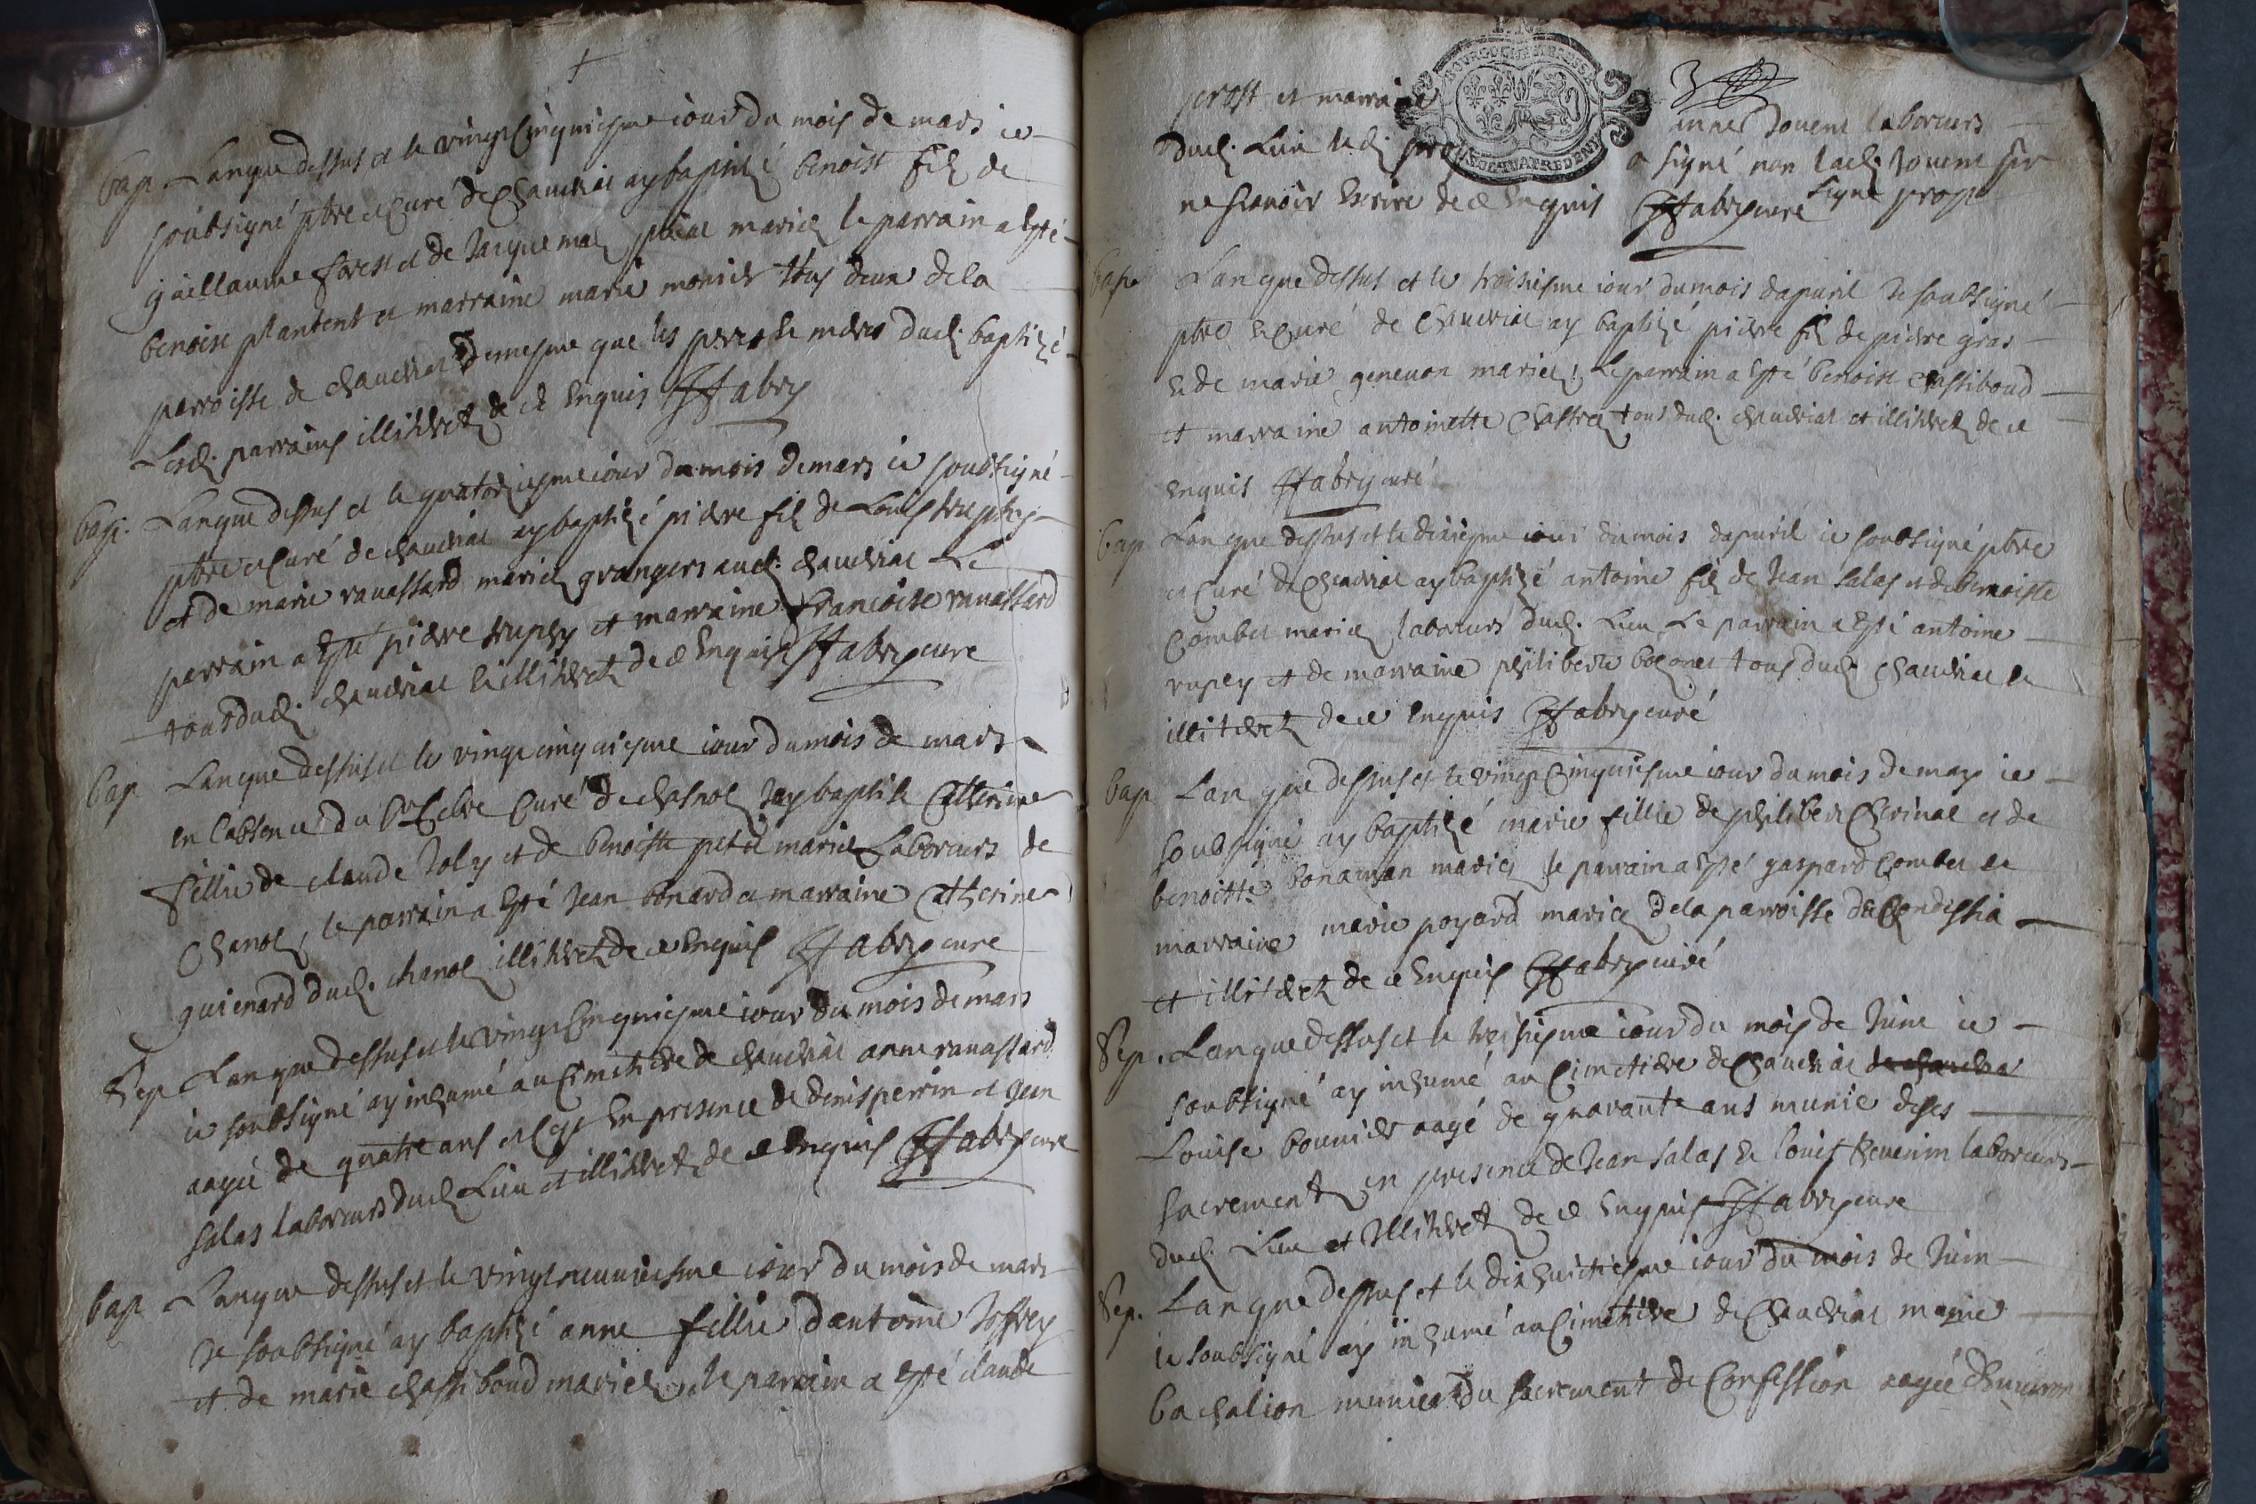 +
bap. Lan que dessus et le vingt cinquiesme iour du mois de mars ie
soubsigné pbre et Curé de Chaveiriat ay baptizé benoist filz de
guillaume forest et de Jacquema mariez le parrain a esté
benoist plantent et marraine marie monier tous deux de la
parroisse de chaveiriat de mesme que les peres et meres dud. baptizé
Lesd. parrains illiterez de ce Enquis Fabry
bap. Lan que dessus et le quatorziesme iour du mois de mars ie soubsigné
pbre et Curé de chaveiriat ay baptizé pierre filz de Louis
et de marie ravassard mariez grangers aud. chaveiriat Le
parrain a esté pierre et marraine francoise ravassard
tous dud. chaveiriat et illiterez de ce Enquis Fabry curé
bap Lan que dessus et le vingt cinquiesme iour du mois de mars
en labsence du Sr Curé de chasnoz Jay baptisé Catherine
fillie de claude Joly et de benoiste petit mariez Laboreurs de
Chanoz, le parrain a esté Jean bonard et marraine Catherine
guienard dud. chanoz illiterez de ce Enquis Fabry curé
Sep Lan que dessus et le vingt Cinquiesme iour du mois de mars
ie soubsigné ay inhumé au Cimetiere de chaveiriat anne ravassard
aagée de quatre ans et Cest En presence de denis perrin et Jean
salas laboreurs dud. Lieu et illiterez de ce Enquis Fabry curé
bap Lan que dessus et le vingt neuviesme iour du mois de mars
Je soubsigné ay baptizé anne fillie dantoine Joffrey
et de marie chassiboud mariez, le parrain a esté claude
prost et marraine Jouent laboreurs
dud. Lieu led. a signé non lad. Jouent pr
ne scavoir Escrire de ce Enquis Fabry curé signé prost
bap Lan que dessus et le troisiesme iour du mois dapvril Je soubsigné
pbre et Curé de Chaveiriat ay baptizé pierre filz de pierre gras
et de marie genevon mariez; Le parrain a Esté benoist chassiboud
et marraine antoinette Chastrez tous dud. chaveiriat et illiterez de ce
enquis Fabry curé
bap Lan que dessus et le dixiesme iour du mois dapvril ie soubsigné pbre
et Curé de Chaveiriat ay baptizé antoine filz de Jean salas et de benoiste
Combet mariez laboreurs dud. Lieu Le parrain a Esté antoine
rupey et de marraine philiberte tous dud. chaveiriat et
illiterez de ce Enquis Fabry curé
bap Lan que dessus et le vingt Cinquiesme iour du mois de may ie
soubsigné ay baptizé marie fillie de philibert Cherinal et de
benoitte bonaman mariez le parrain a Esté gaspard Combet et
marraine marie poyard mariez de la parroisse de Condessia
et illiterez de ce Enquis Fabry curé
Sep. Lan que dessus et le treisiesme iour du mois de Juin ie
soubsigné ay inhumé au Cimetiere de Chaveiriat
Louise bouvier aagé de quarante ans munie deses
sacrementz en presence de Jean salas et louis thevenin laboreurs
dud. Lieu et Illiterez de ce Enquis Fabry curé
Sep. Lan que dessus et le dix huictiesme iour du mois de Juin
ie soubsigné ay inhumé au Cimetiere de Chaveiriat
bachalion munie du sacrement de Confession aagée denviron